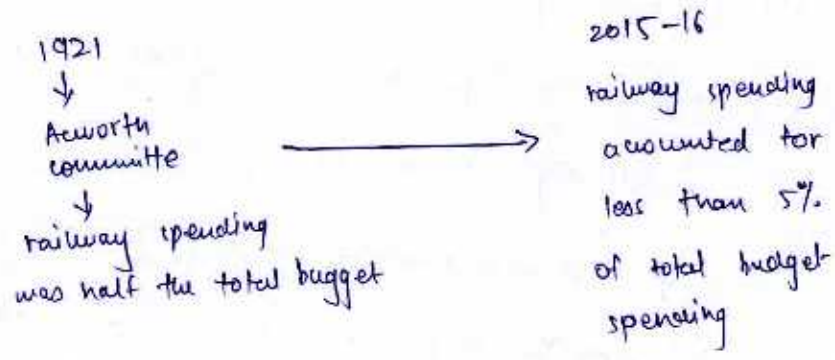 1921
↓
Acworth
committe
↓
railway spending
was half the total bugget
→
2015-16
railway spending
accounted for
less than 5%
of total budget
spending